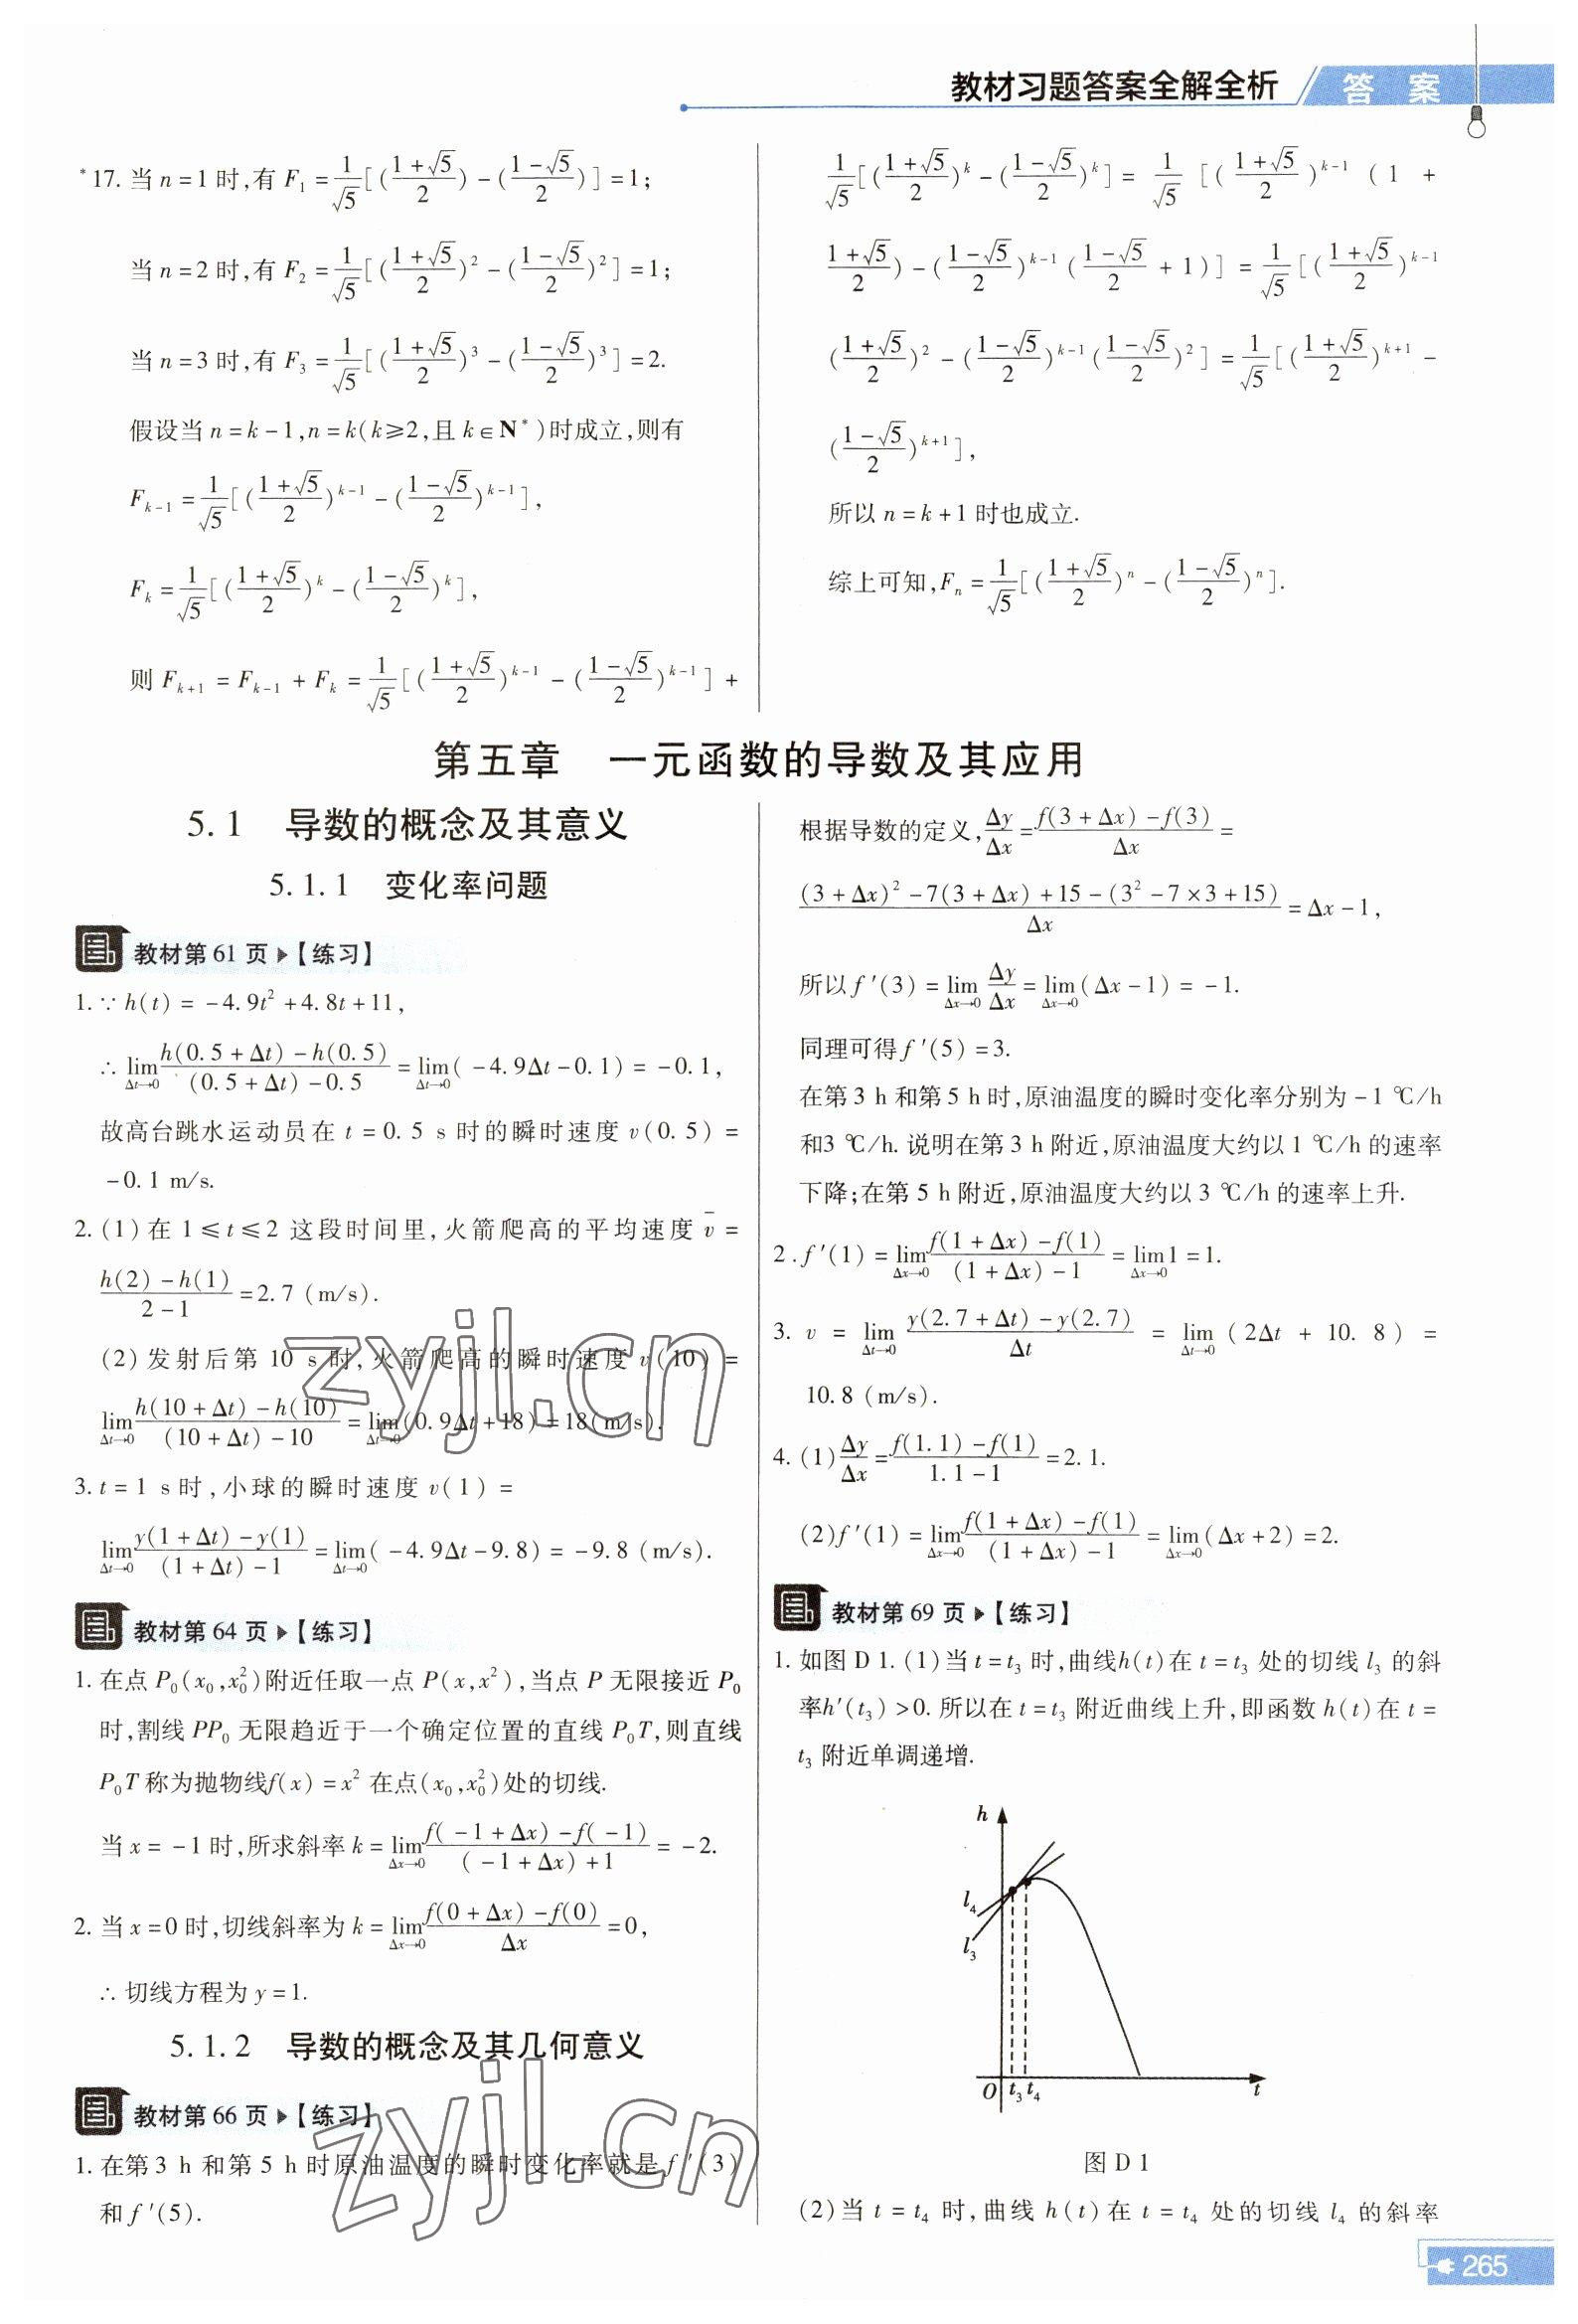 教材习题答案全解全析 答 案
*17. 当 n=1 时,有 F₁ = 1/√5[((1+√5)/2) - ((1-√5)/2)] = 1;
当 n=2 时,有 F₂ = 1/√5[((1+√5)/2)² - ((1-√5)/2)²] = 1;
当 n=3 时,有 F₃ = 1/√5[((1+√5)/2)³ - ((1-√5)/2)³] = 2.
假设当 n=k-1,n=k(k≥2,且 k∈N*)时成立,则有
Fₖ₋₁ = 1/√5[((1+√5)/2)^(k-1) - ((1-√5)/2)^(k-1)],
Fₖ = 1/√5[((1+√5)/2)^k - ((1-√5)/2)^k],
则 Fₖ₊₁ = Fₖ₋₁ + Fₖ = 1/√5[((1+√5)/2)^(k-1) - ((1-√5)/2)^(k-1)] +
1/√5[((1+√5)/2)^k - ((1-√5)/2)^k] = 1/√5[((1+√5)/2)^(k-1) (1 +
(1+√5)/2) - ((1-√5)/2)^(k-1) ((1-√5)/2 + 1)] = 1/√5[((1+√5)/2)^(k-1)
((1+√5)/2)² - ((1-√5)/2)^(k-1) ((1-√5)/2)²] = 1/√5[((1+√5)/2)^(k+1) -
((1-√5)/2)^(k+1)],
所以 n=k+1 时也成立.
综上可知,Fₙ = 1/√5[((1+√5)/2)^n - ((1-√5)/2)^n].
第五章 一元函数的导数及其应用
5.1 导数的概念及其意义
5.1.1 变化率问题
教材第 61 页▶【练习】
1. ∵ h(t) = -4.9t² + 4.8t + 11,
∴ lim(Δt→0) (h(0.5+Δt) - h(0.5))/((0.5+Δt) - 0.5) = lim(Δt→0)(-4.9Δt - 0.1) = -0.1,
故高台跳水运动员在 t = 0.5 s 时的瞬时速度 v(0.5) =
-0.1 m/s.
2. (1)在 1≤t≤2 这段时间里,火箭爬高的平均速度 v̄ =
(h(2) - h(1))/(2-1) = 2.7 (m/s).
(2)发射后第 10 s 时,火箭爬高的瞬时速度 v(10) =
lim(Δt→0) (h(10+Δt) - h(10))/((10+Δt) - 10) = lim(Δt→0)(0.9Δt + 18) = 18(m/s).
3. t = 1 s 时,小球的瞬时速度 v(1) =
lim(Δt→0) (y(1+Δt) - y(1))/((1+Δt) - 1) = lim(Δt→0)(-4.9Δt - 9.8) = -9.8 (m/s).
教材第 64 页▶【练习】
1. 在点 P₀(x₀,x₀²)附近任取一点 P(x,x²),当点 P 无限接近 P₀
时,割线 PP₀ 无限趋近于一个确定位置的直线 P₀T,则直线
P₀T 称为抛物线f(x) = x² 在点(x₀,x₀²)处的切线.
当 x = -1 时,所求斜率 k = lim(Δx→0) (f(-1+Δx) - f(-1))/((-1+Δx)+1) = -2.
2. 当 x=0 时,切线斜率为 k = lim(Δx→0) (f(0+Δx) - f(0))/Δx = 0,
∴ 切线方程为 y = 1.
5.1.2 导数的概念及其几何意义
教材第 66 页▶【练习】
1. 在第 3 h 和第 5 h 时原油温度的瞬时变化率就是 f′(3)
和 f′(5).
根据导数的定义, Δy/Δx = (f(3+Δx) - f(3))/Δx =
((3+Δx)² - 7(3+Δx) + 15 - (3² - 7×3 + 15))/Δx = Δx - 1,
所以 f′(3) = lim(Δx→0) Δy/Δx = lim(Δx→0)(Δx - 1) = -1.
同理可得 f′(5) = 3.
在第 3 h 和第 5 h 时,原油温度的瞬时变化率分别为 -1 ℃/h
和3 ℃/h. 说明在第 3 h 附近,原油温度大约以 1 ℃/h 的速率
下降;在第 5 h 附近,原油温度大约以 3 ℃/h 的速率上升.
2. f′(1) = lim(Δx→0) (f(1+Δx) - f(1))/((1+Δx) - 1) = lim(Δx→0) 1 = 1.
3. v = lim(Δt→0) (y(2.7+Δt) - y(2.7))/Δt = lim(Δt→0) (2Δt + 10.8) =
10.8 (m/s).
4. (1) Δy/Δx = (f(1.1) - f(1))/(1.1 - 1) = 2.1.
(2)f′(1) = lim(Δx→0) (f(1+Δx) - f(1))/((1+Δx) - 1) = lim(Δx→0)(Δx + 2) = 2.
教材第 69 页▶【练习】
1. 如图 D 1. (1)当 t = t₃ 时,曲线h(t)在 t = t₃ 处的切线 l₃ 的斜
率h′(t₃) > 0. 所以在 t = t₃ 附近曲线上升,即函数 h(t)在 t =
t₃ 附近单调递增.
h
l₄
l₃
O t₃ t₄ t
图 D 1
(2)当 t = t₄ 时,曲线 h(t)在 t = t₄ 处的切线 l₄ 的斜率
265
zyjl.cn
zyjl.cn